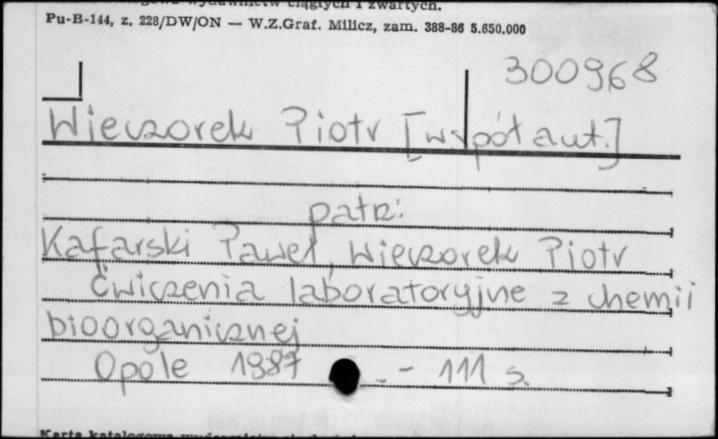 wydawnictw ciągłych i zwartych.
Pu-B-144, z. 228/DW/ON — W.Z.Graf. Milicz, zam. 388-86 5.650.000
300968
Wieczorek Piotr [współaut.]
patrz:
Kafarski Paweł, Wieczorek Piotr
Ćwiczenia laboratoryjne z chemii
bioorganicznej
Opole 1987 . - 111 s.
Karta katalogowa